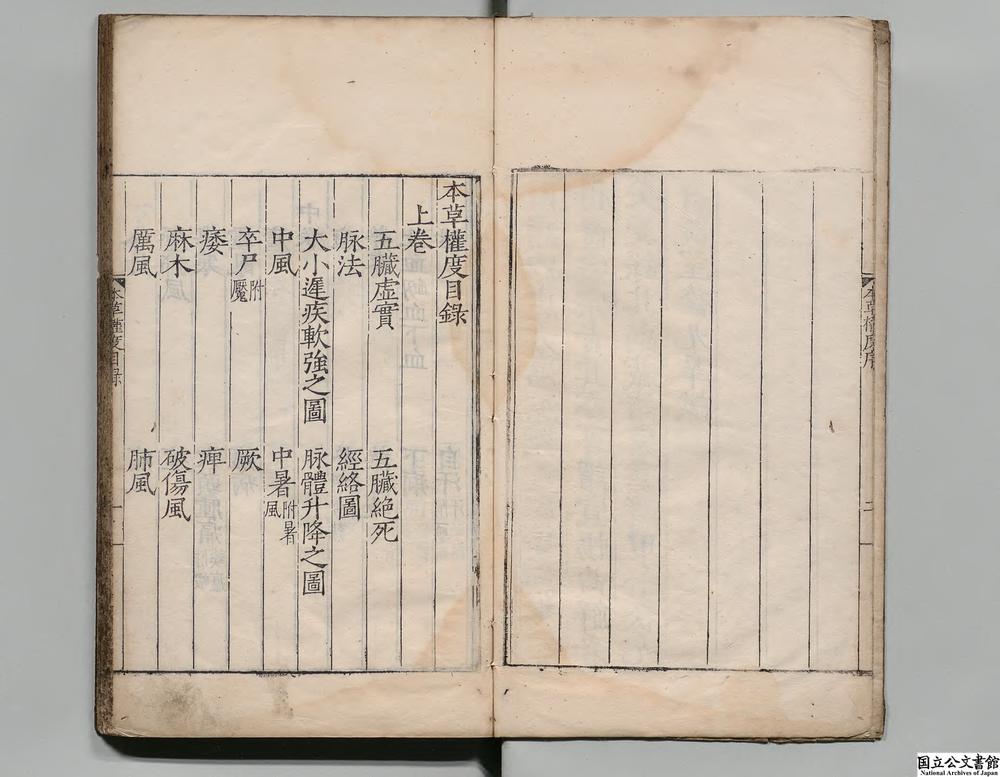 本草權度序
二
本草權度目錄
上卷
五臟虛實 五臟絕死
脉法 經絡圖
大小遲疾軟強之圖 脉體升降之圖
中風 中暑附暑風
卒尸附魘 厥
痿 痺
麻木 破傷風
厲風 肺風
本草權度目録
一
国立公文書館
National Archives of Japan